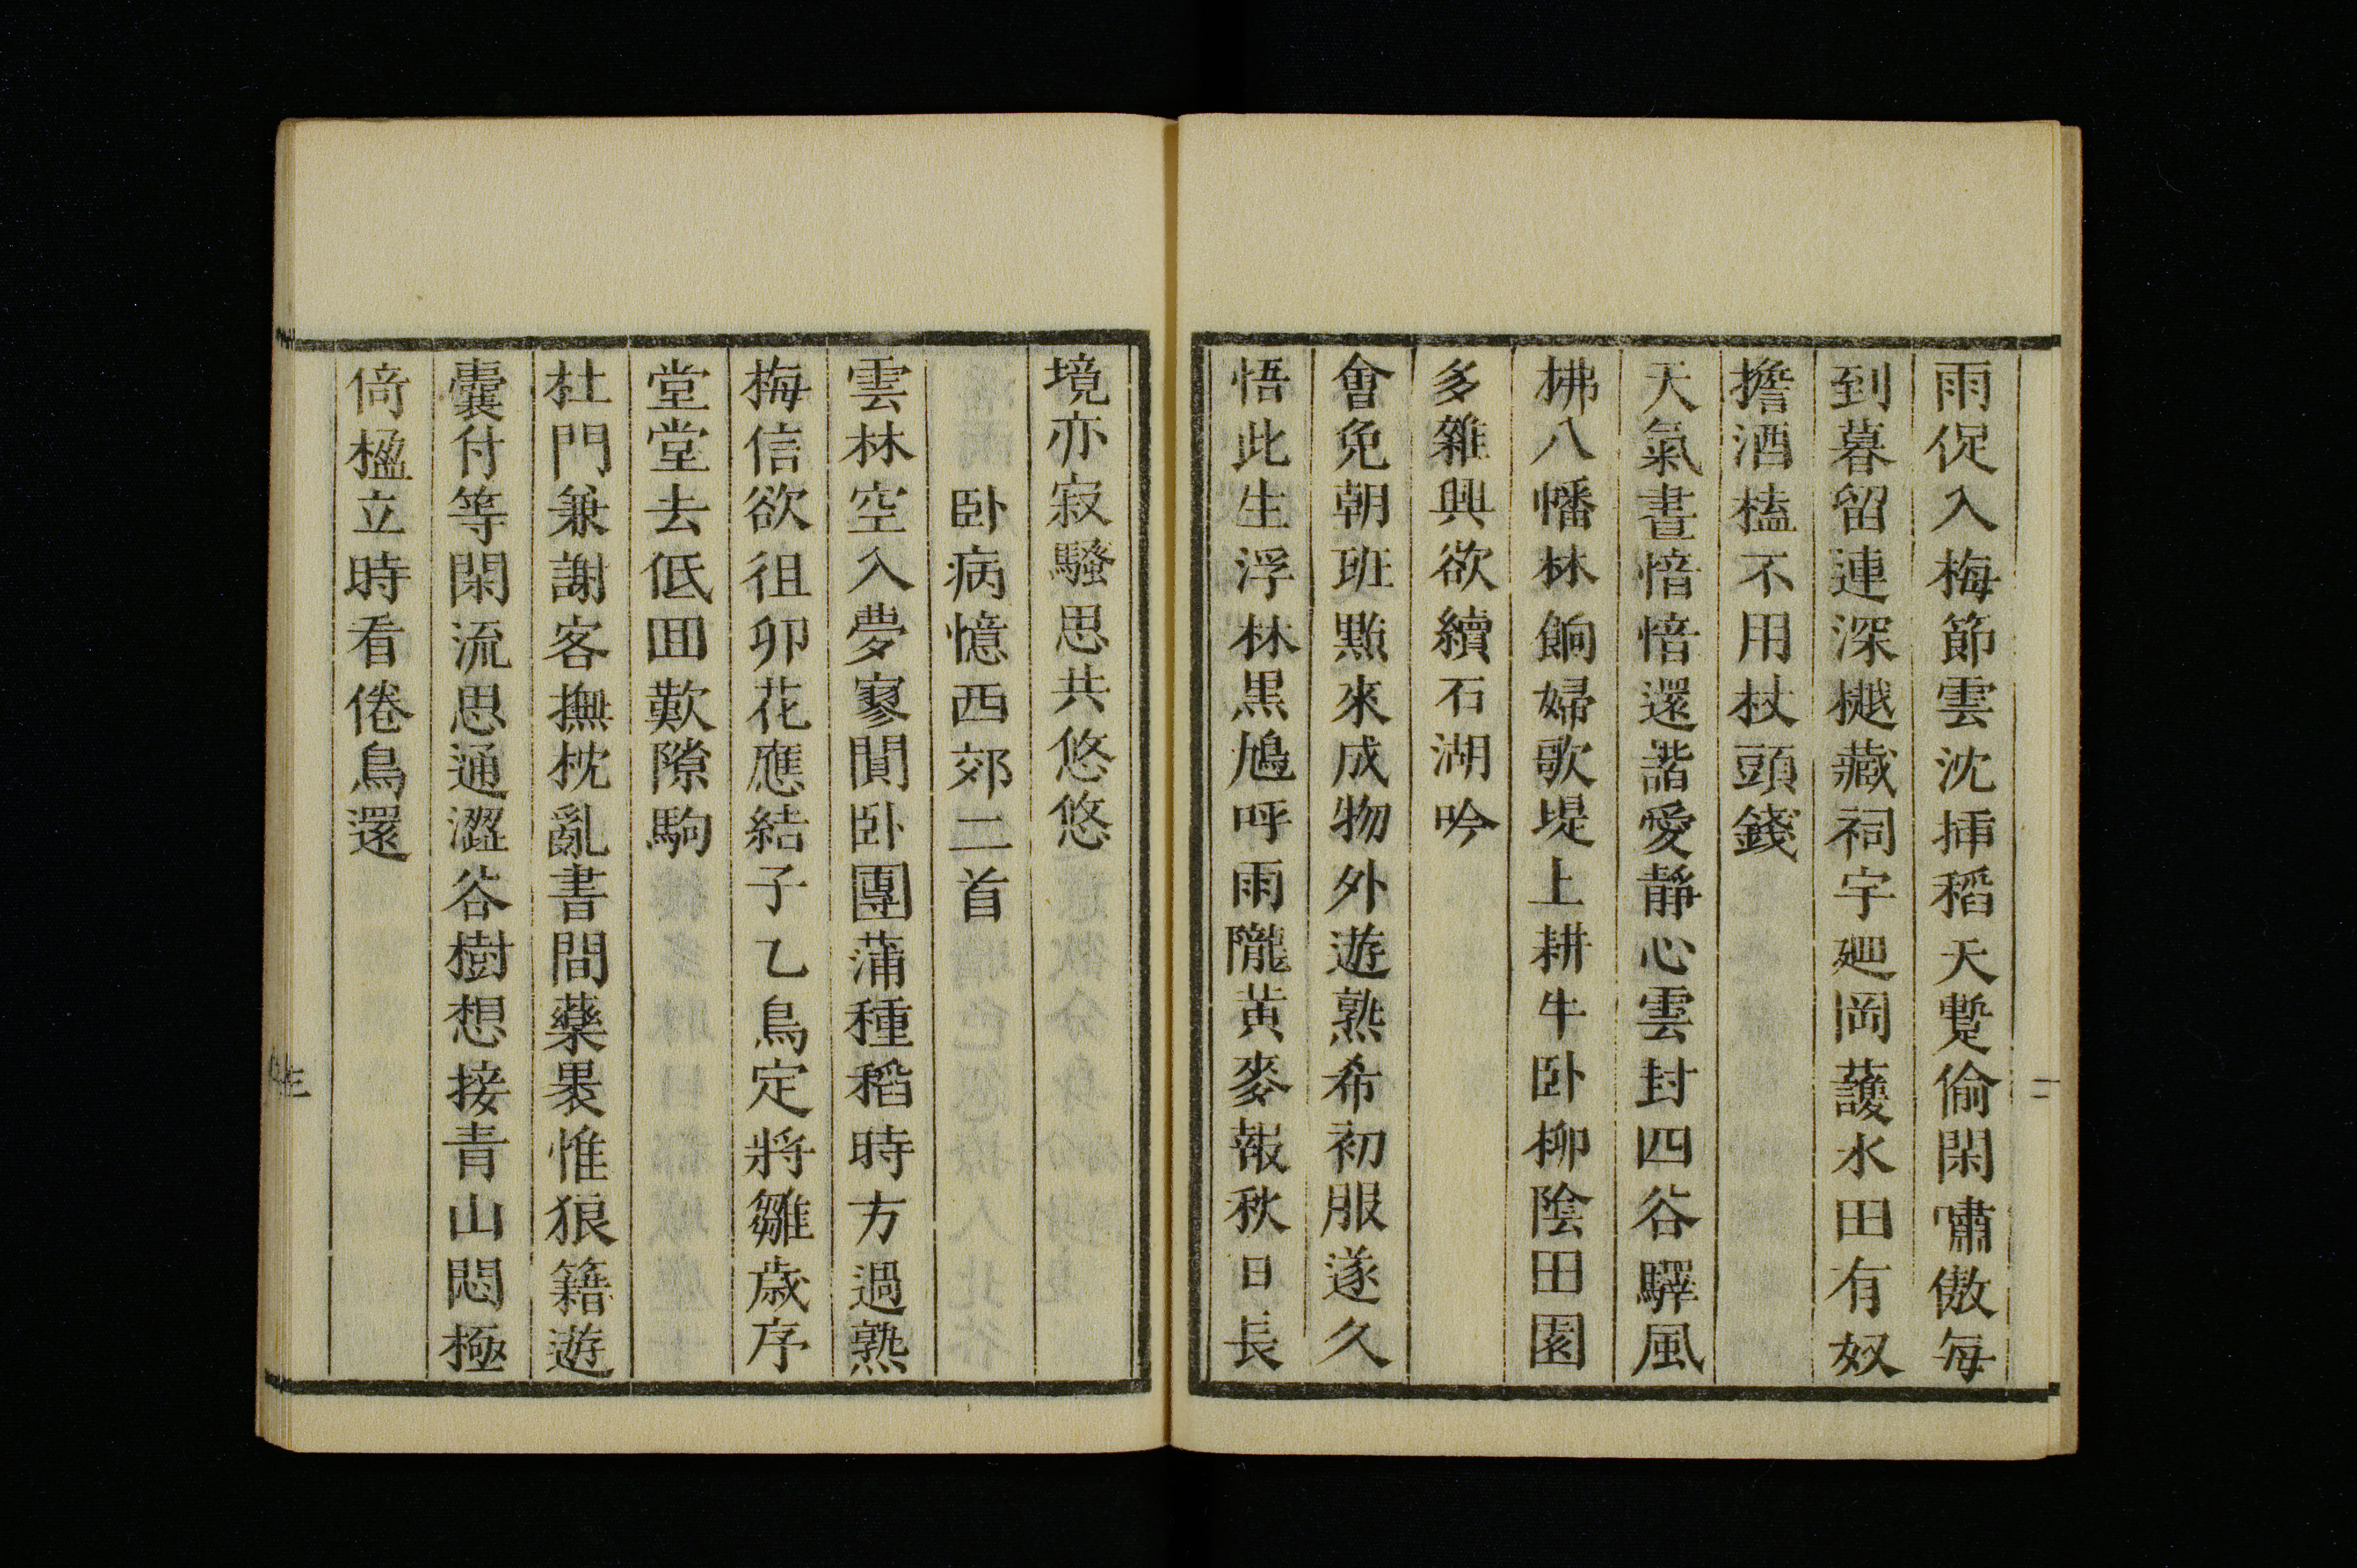 雨促入梅節雲沈挿稻天蹔偷閑嘯傲每
到暮留連深樾藏祠宇廻岡護水田有奴
擔酒榼不用杖頭錢
天氣晝愔愔還諧愛靜心雲封四谷驛風
拂八幡林餉婦歌堤上耕牛卧柳陰田園
多雜興欲續石湖吟
會免朝班點來成物外遊熟希初服遂久
悟此生浮林黒鳩呼雨隴黃麥報秋日長
二
境亦寂騷思共悠悠
卧病憶西郊二首
雲林空入夢寥閴卧團蒲種稻時方過熟
梅信欲徂卯花應結子乙鳥定將雛歲序
堂堂去低囬歎隙駒
杜門兼謝客撫枕亂書間藥裹惟狼籍遊
囊付等閑流思通澀谷樹想接青山悶極
倚楹立時看倦鳥還
三